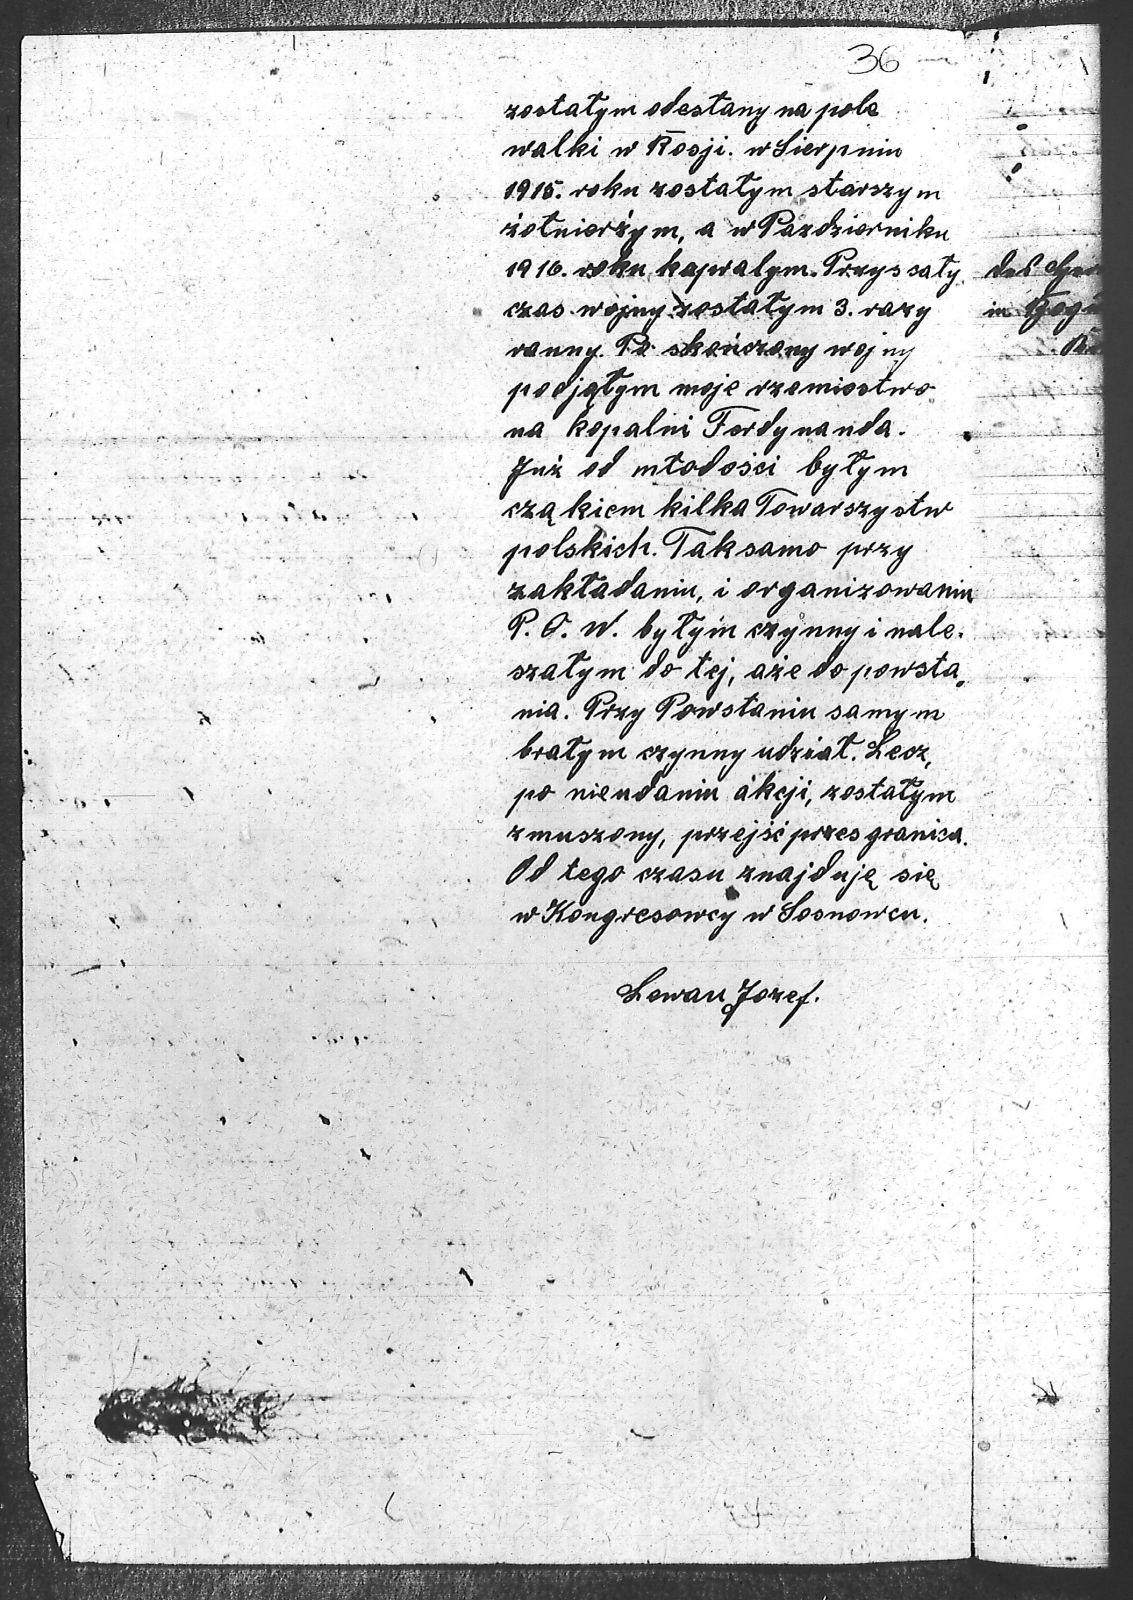 36
zostałym odesłany na pole
walki w Rosji. w Sierpniu
1915. roku zostałym starszym
żołnierżym, a w Pazdzierniku
1916. roku kapralym. Przys cały
czas wojny zostałym 3. razy
ranny. Po skończony wojny
podjąłym moje rzemiostwo
na kopalni Ferdynanda.
Już od młodości byłym
cząkiem kilka Towarszystw
polskich. Taksamo przy
zakładaniu, i organizowaniu
P. O. W. byłym czynny i nale-
szałym do tej, aże do powsta„
nia. Przy Powstaniu samym
brałym czynny udział. Lecz,
po nieudaniu akcji, zostałym
zmuszony, przejść przes granica.
Od tego czasu znajduję się
w Kongresowcy w Sosnowcu.
Lewan Jozef.
des
in